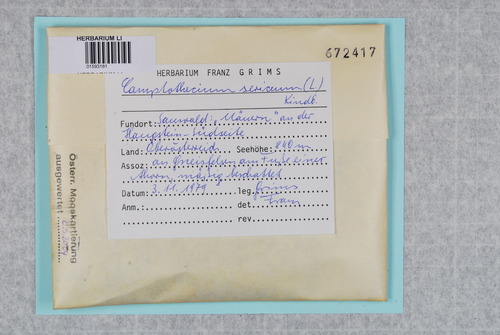 HERBARIUM LI
672417
HERBARIUM FRANZ GRIMS
Camptothecium sericeum (L)
Kindb.
Fundort: Sauwald: "Mauern" an der
Haugstein-Südseite
Land: Oberösterreich Seehöhe: 840 m
Assoz: an Gneisfelsen am Fuße einer
mäßig beschattet
Datum: 3.11.1979 leg. Grims
Anm.: det. Franz
rev.
Österr. Mooskartierung
ausgewertet